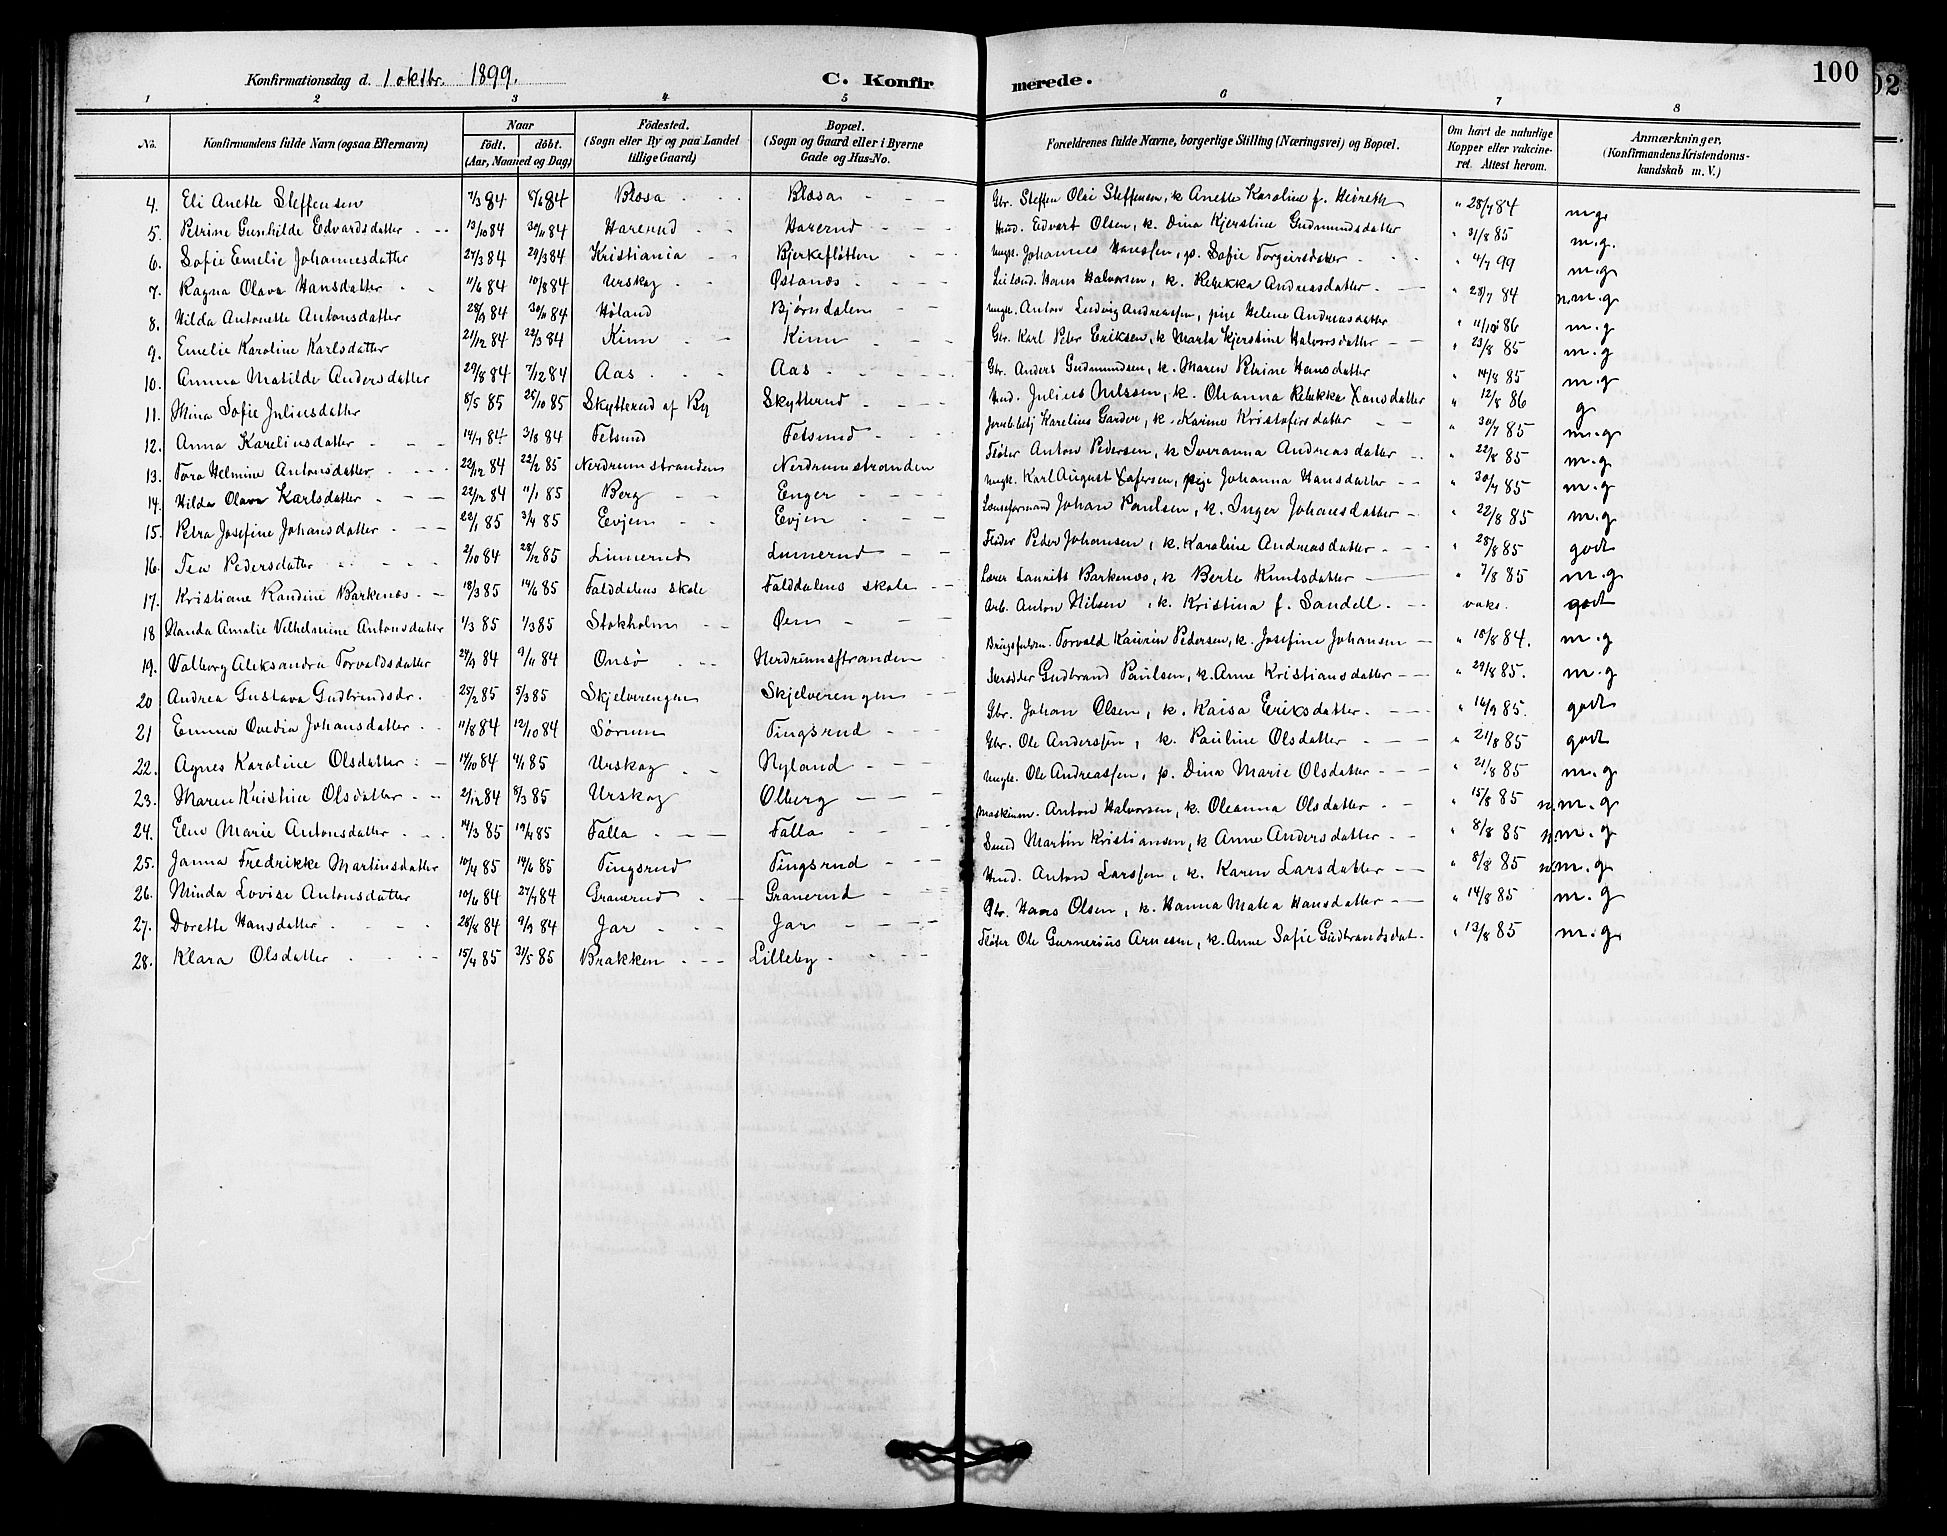 100
02
Konfirmationsdag d. 1 oktbr. 1899. C. Konfirmerede.
1 2 3 4 5 6 7 8
No. Konfirmandens fulde Navn (ogsaa Efternavn) Naar Födt. döbt. (Aar, Maaned og Dag) Födested. (Sogn eller By og paa Landet tillige Gaard) Bopæl. (Sogn og Gaard eller i Byerne Gade og Hus-No. Forældrenes fulde Navne, borgerlige Stilling (Næringsvei) og Bopæl. Om havt de naturlige Kopper eller vakcineret. Attest herom. Anmærkninger, (Konfirmandens Kristendomskundskab m. V.)
4. Eli Anette Steffensen 7/3 84 8/6 84 Blæsa Blæsa Gbr. Steffen Olai Steffensen, k. Anette Karoline f. " 28/7 84 m.g.
5. Petrine Gunhilde Edvardsdatter 13/10 84 30/11 84 Harerud Harerud Hmd. Edvart Olsen, k. Dina Kjerstine Gudmundsdatter " 31/8 85 m.g.
6. Sofie Emelie Johannesdatter 27/3 84 29/3 84 Kristiania Bjerkefløtten Ungk. Johannes Hanssen, p. Sofie Torgeirsdatter " 4/7 99 m.g
7. Ragna Olava Hansdatter 11/6 84 10/8 84 Urskog Østanæs Leilænd. Hans Halvorsen, k. Rebekka Andreasdatter " 28/7 84 n.m.g
8. Hilda Antonette Antonsdatter 28/9 84 30/11 84 Høland Bjørndalen Ungk. Anton Ludvig Andreassen, pige Helene Andreasdatter " 11/10 86 m.g
9. Emelie Karoline Karlsdatter 21/12 84 22/3 84 Kinn Kinn Gbr. Karl Peter Eriksen, k Marta Kjerstine Halvorsdatter " 23/8 85 m.g
10. Anna Matilde Andersdatter 29/8 84 7/12 84 Aas Aas Gbr. Anders Gudmundsen, k. Maren Petrine Hansdatter " 14/8 85 m.g
11. Mina Sofie Juliusdatter 8/5 85 25/10 85 Skytterud af By Skytterud Hmd. Julius Nilssen, k. Oleanna Rebekka Hansdatter " 12/8 86 g
12. Anna Kareliusdatter 14/7 84 3/8 84 Fetsund Fetsund Karelius Garder, k. Karine Kristofersdatter " 30/7 85 m.g
13. Tora Helmine Antonsdatter 22/12 84 22/2 85 Nerdrumstranden Nerdrumstranden Fløter Anton Pedersen, k Iveranna Andreasdatter " 22/8 85 m.g
14. Hilda Olava Karlsdatter 22/12 84 11/1 85 Berg Enger Ungk. Karl August, pige Johanna Hansdatter " 30/7 85 m.g
15. Petra Josefine Johansdatter 22/1 85 3/4 85 Eevjen Evjen Lænseformand Johan Paulsen, k. Inger Johansdatter " 22/8 85 m.g
16. Tea Pedersdatter 2/10 84 28/12 85 Linnerud Linnerud Fløder Peder Johansen, k. Karoline Andreasdatter " 28/8 85 godt
17. Kristiane Randine Barkenæs 18/3 85 14/6 85 Falddalens skole Falddalens skole Lærer Laurits Barkenæs, k. Berte Knutsdatter " 7/8 85 m.g
18 Wanda Amalie Vilhelmine Antonsdatter 1/3 85 1/3 85 Stokholm Øen Arb. Anton Nilsen, k. Kristina f. Sandell. vaks. godt
19. Valborg Aleksandra Torvaldsdatter 24/9 84 9/11 84 Onsø Nerdrumstranden Brugsfuldm. Torvald Kaurin Pedersen, k. Josefine Johansen " 18/8 84. m.g
20 Andrea Gustava Gudbrandsdr. 25/2 85 5/3 85 Skjelverengen Skjelverengen Skrædder Gudbrand Paulsen, k. Anne Kristiansdatter " 29/8 85. m.g
21 Emma Ovedia Johansdatter 11/8 84 12/10 84 Sørum Tingsrud Gbr. Johan Olsen, k. Kaisa Eriksdatter " 16/9 85. godt
22. Agnes Karoline Olsdatter 14/10 84 4/1 85 Urskog Nyland Gbr. Ole Anderssen, k. Pauline Olsdatter " 21/8 85 godt
23. Maren Kristine Olsdatter 2/12 84 8/3 85 Urskog Olberg Ungk. Ole Andreassen, p. Dina Marie Olsdatter " 21/8 85 m.g
24. Elne Marie Antonsdatter 14/3 85 19/4 85 Falla Falla Maskinm. Anton Halvorsen, k. Oleanna Olsdatter " 15/8 85 n.m.g
25. Janna Fredrikke Martinsdatter 10/4 85 14/6 85 Tingsrud Tingsrud Smed Martin Kristiansen, k Anne Andersdatter " 8/8 85 n.m.g
26. Minda Lovise Antonsdatter 10/6 84 27/7 84 Granerud Granerud Hmd. Anton Larssen, k. Karen Larsdatter " 8/8 85 n.m.g
27. Dorette Hansdatter 28/8 84 9/9 84 Jar Jar Gbr. Hans Olsen, k. Hanna Matea Hansdatter " 14/8 85 m.g
28. Klara Olsdatter 15/4 85 31/5 85 Brakken Lilleby Fløter Ole Gunnerius Arnesen, k. Anne Sofie Gudbrandsdat. " 13/8 85 m.g